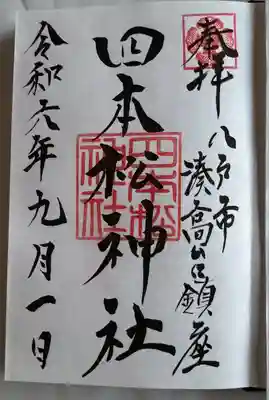 奉拝
八戸市
湊高台鎮座
四本松神社
四本松神社
令和六年九月一日